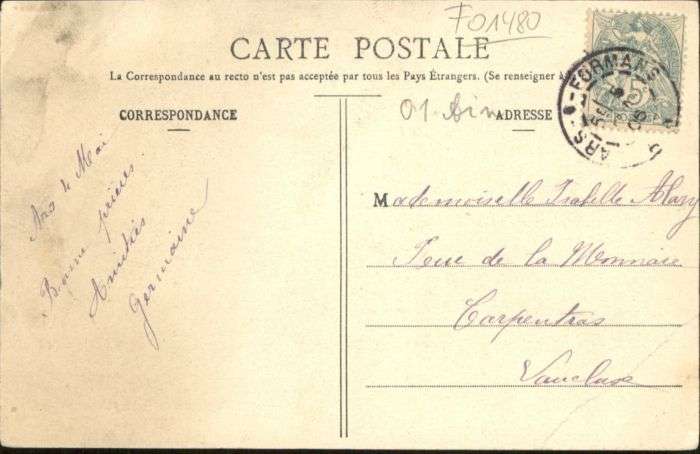 F01480
CARTE POSTALE
La Correspondance au recto n'est pas acceptée par tous les Pays Étrangers. (Se renseigner
CORRESPONDANCE
01-Ain
ADRESSE
ARS - FORMANS
5
Ars 4 Mai
Bonne prières
Amitiés
Germaine
Mademoiselle Isabelle Alazy
Rue de la Monnaie
Carpentras
Vaucluse